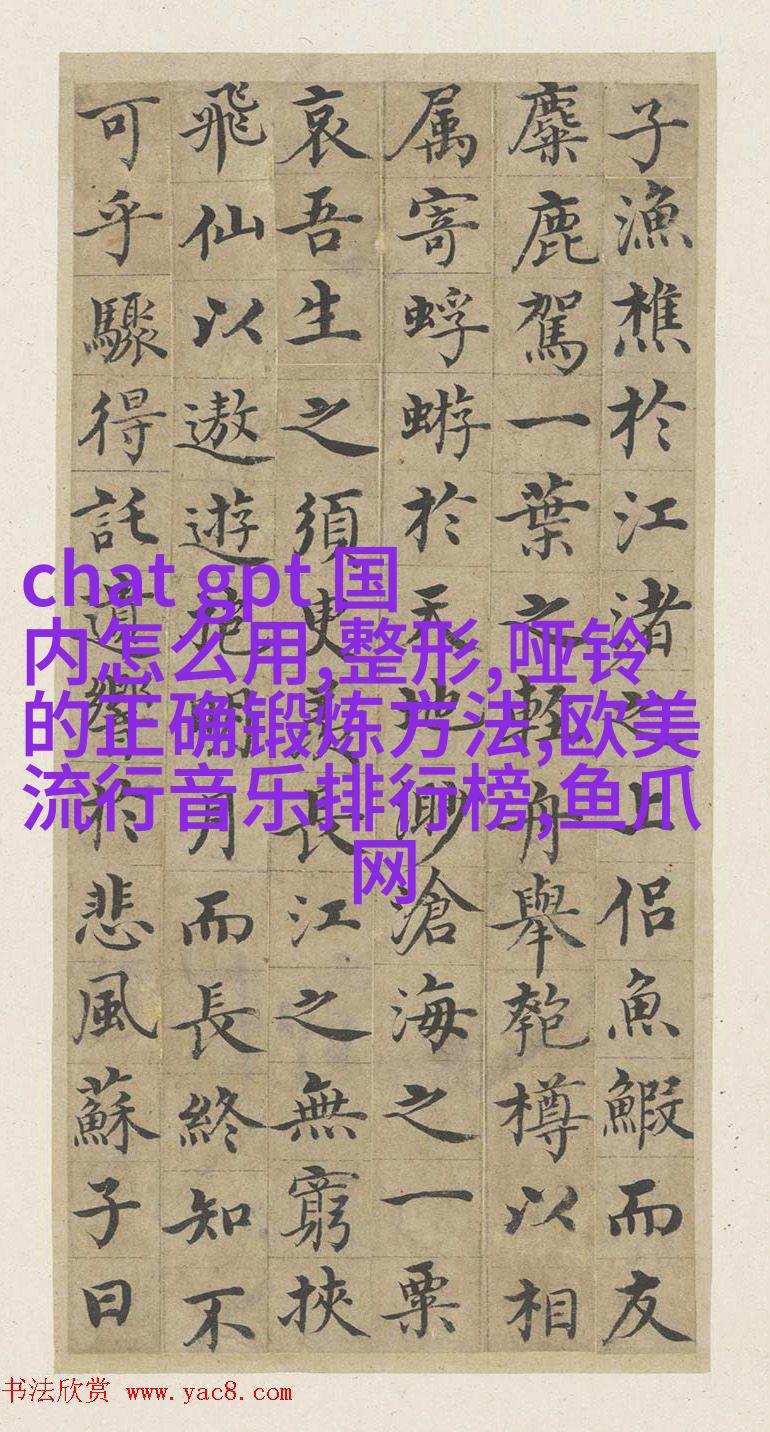 子漁樵於江渚之上侶魚鰕而友
麋鹿駕一葉之輕舟舉匏樽以相
属寄蜉蝣於天地渺滄海之一粟
哀吾生之須臾羨長江之無窮挾
飛仙以遨遊抱明月而長終知不
可乎驟得託遺響於悲風蘇子曰
chat gpt 国
内怎么用,整形,哑铃
的正确锻炼方法,欧美
流行音乐排行榜,鱼爪
网
书法欣赏 www.yac8.com